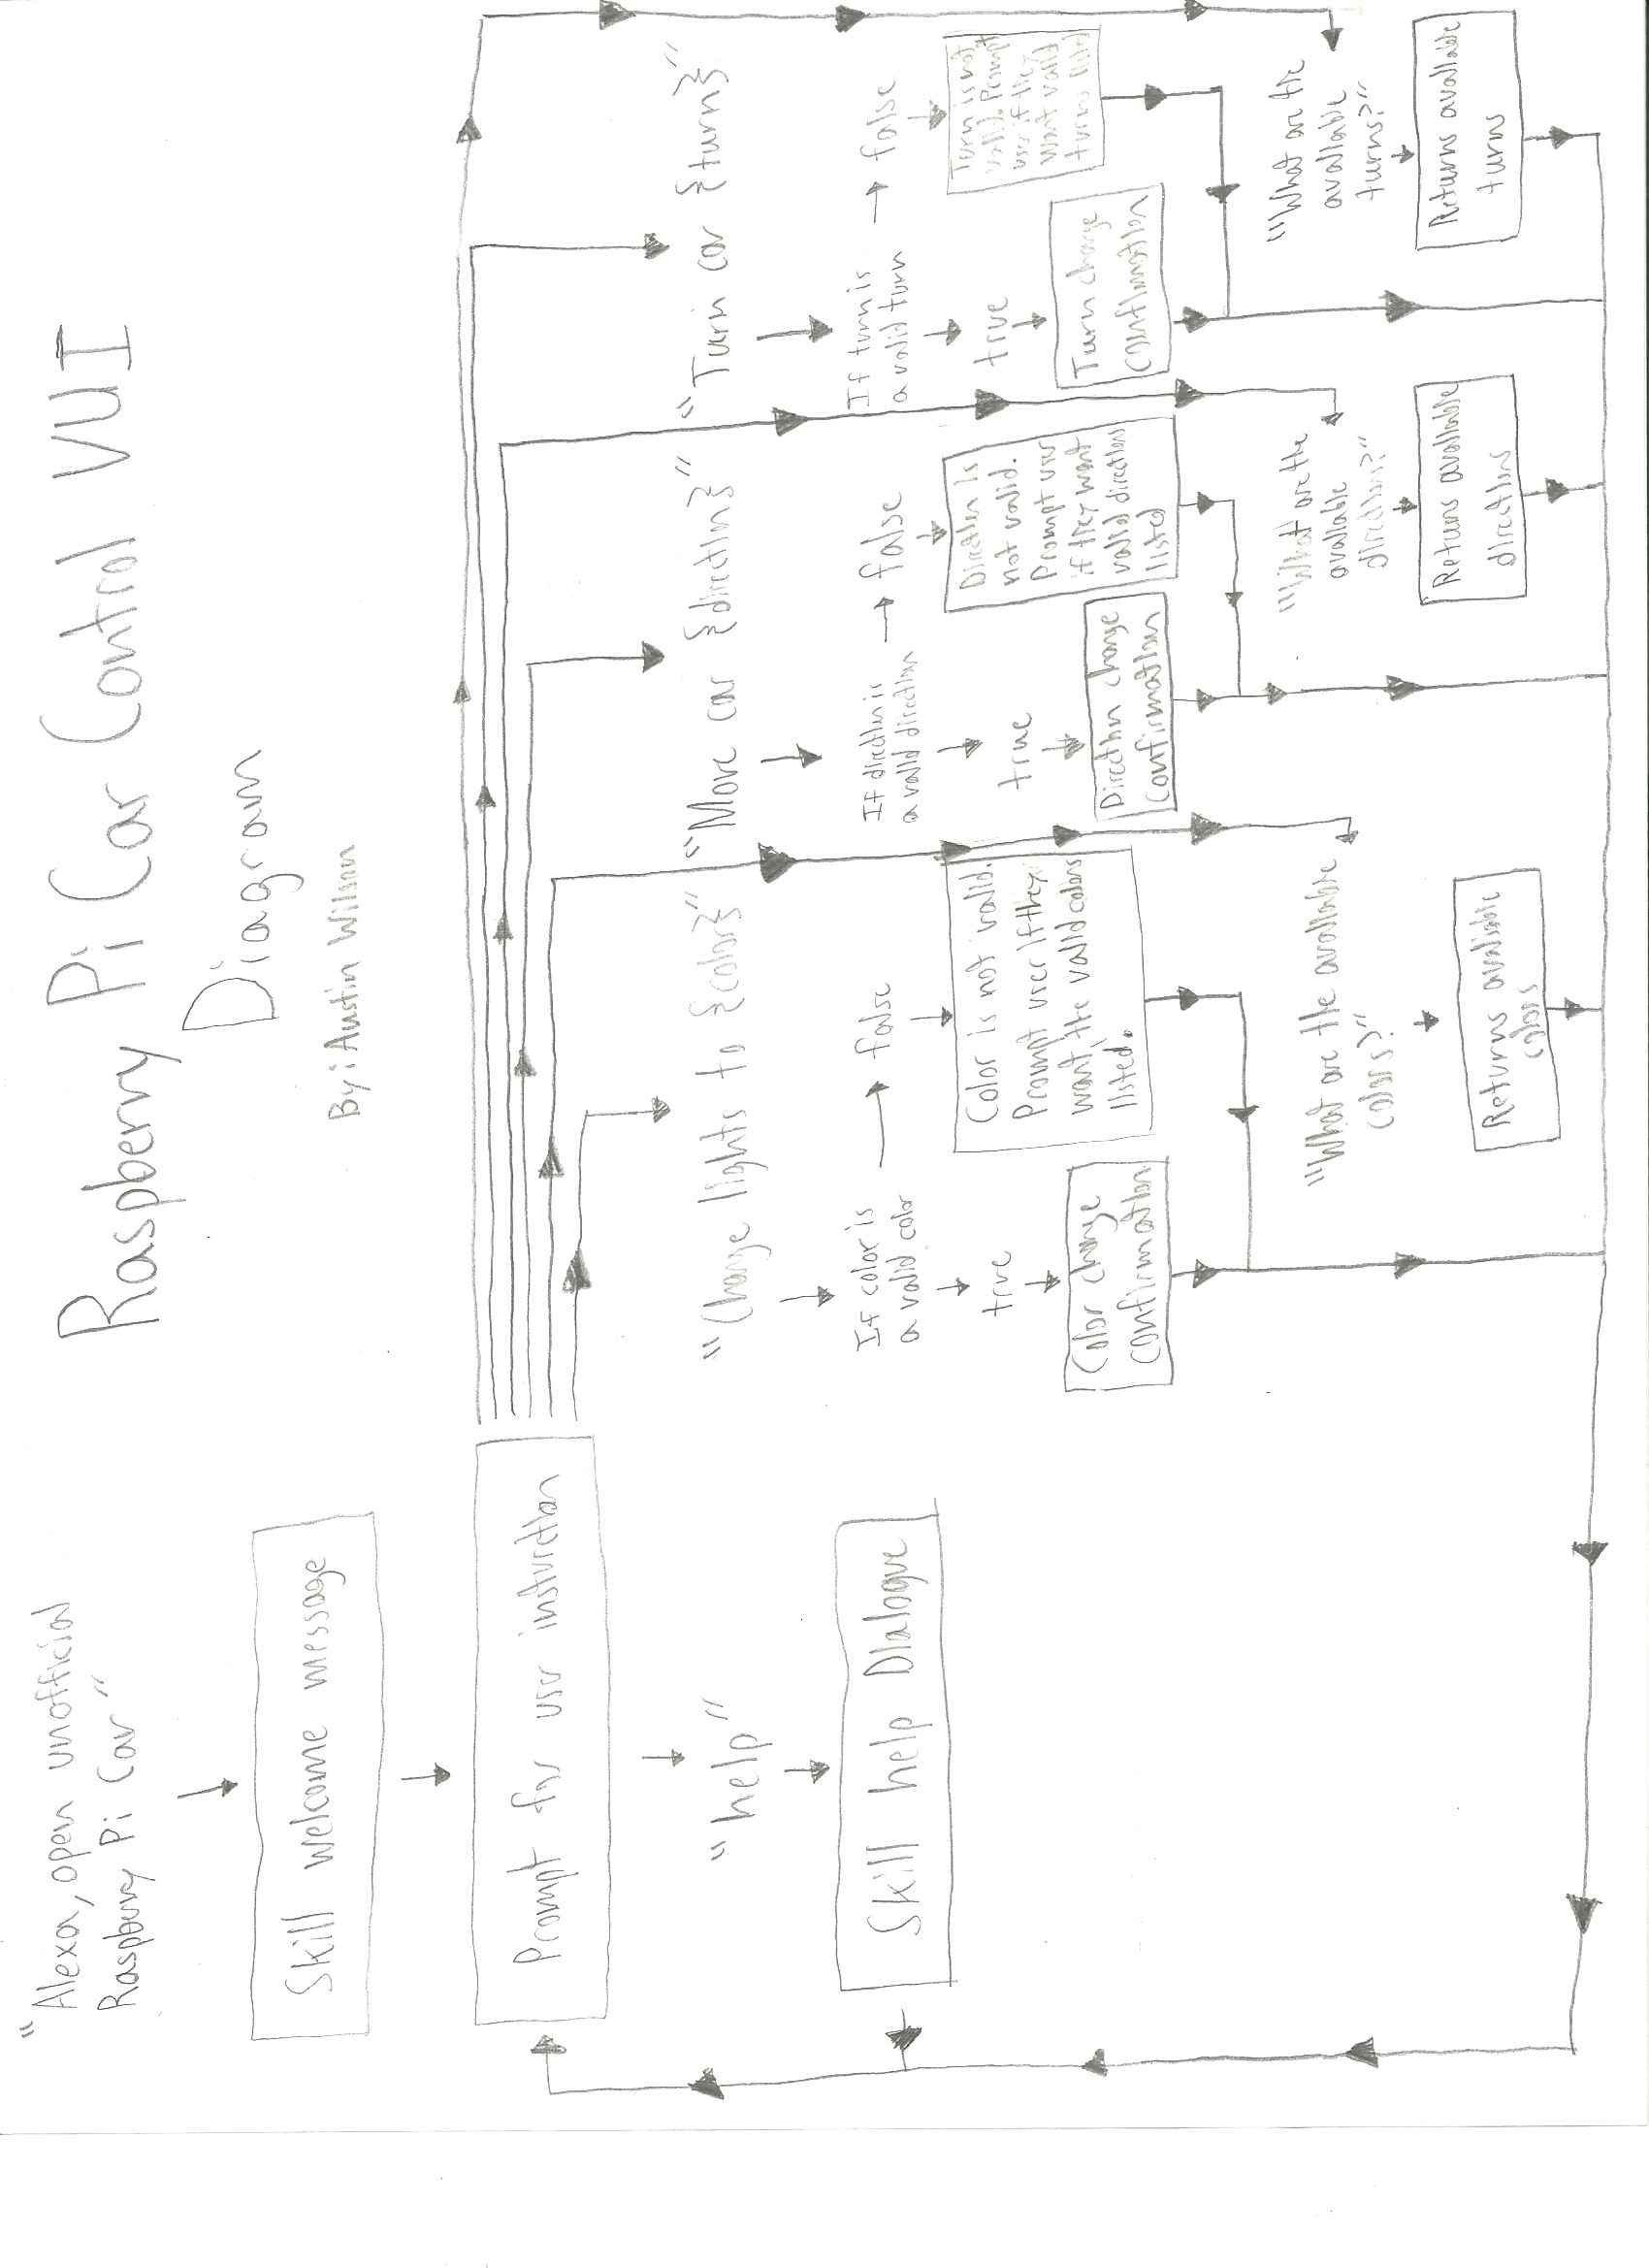 "Alexa, open unofficial
Raspberry Pi Car"
Raspberry Pi Car Control VUI
Diagram
By: Austin Wilson
Skill welcome message
Prompt for user insturction
"help"
Skill help Dialogue
"Change lights to {color}"
If color is
a valid color
false
true
Color change
confirmation
Color is not valid.
Prompt user if they
want the valid colors
listed.
"What are the available
colors?"
Returns available
colors
"Move car {direction}"
If direction is
a valid direction
false
true
Direction change
confirmation
Direction is
not valid.
Prompt user
if they want
valid directions
listed
"What are the
available
directions?"
Returns available
directions
"Turn car {turn}"
If turn is
a valid turn
false
true
Turn change
confirmation
Turn is not
valid. Prompt
user if they
want valid
turns listed
"What are the
available
turns?"
Returns available
turns